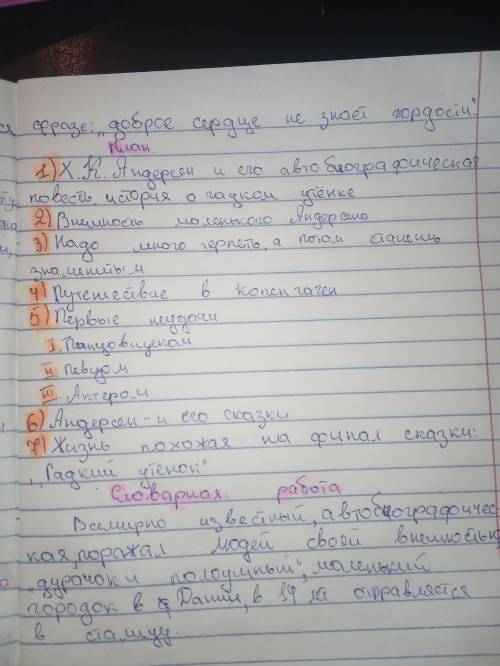 фразе: „доброе сердце не знает гордости".
План.
1) Х. К. Андерсен и его автобиографическая
повесть, история о гадком утёнке
2) Внешность маленького Андерсена
3) Надо много терпеть, а потом станешь
знаменитым
4) Путешествие в Копенгаген
5) Первые неудачи
I. Танцовщиком
II. Певцом
III. Актером
6) Андерсен - и его сказки
7) Жизнь похожая на финал сказки:
„Гадкий утенок"
Словарная работа
Всемирно известный, автобиографичес-
кая, поражал людей своей внешностью,
„дурачок и полоумный", маленький
городок в Дании, в 14 лет отправляется
в столицу.